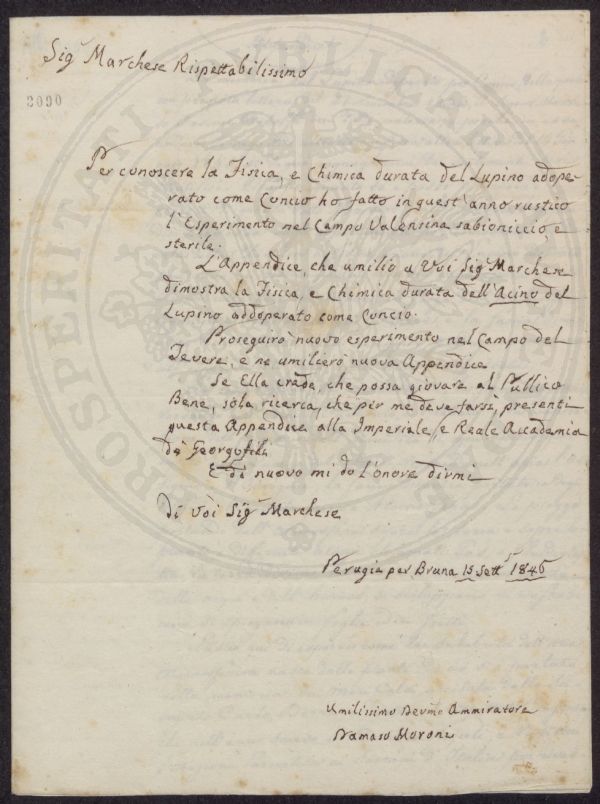 Sig.r Marchese Rispettabilissimo
2090
PROSPERITATI PUBLICAE
Per conoscere la Fisica, e Chimica durata del Lupino adope-
rato come Concio ho fatto in quest'anno rustico
l'Esperimento nel Campo Valensina sabioniccio, e
sterile.
L'Appendice, che umilio a Voi Sig.r Marchese
dimostra la Fisica, e Chimica durata dell'Acino del
Lupino addoperato come Concio.
Proseguirò nuovo esperimento nel Campo del
Tevere, e ne umilierò nuova Appendice
Se Ella crede, che possa giovare al Pullico
Bene, sola ricerca, che per me deve farsi, presenti
questa Appendice alla Imperiale, e Reale Accademia
de Georgofili
E di nuovo mi do l'onore dirmi
Di Voi Sig.r Marchese
Perugia per Bruna 15 Sett.e 1846
Umilissimo Devmo Ammiratore
Damaso Moroni